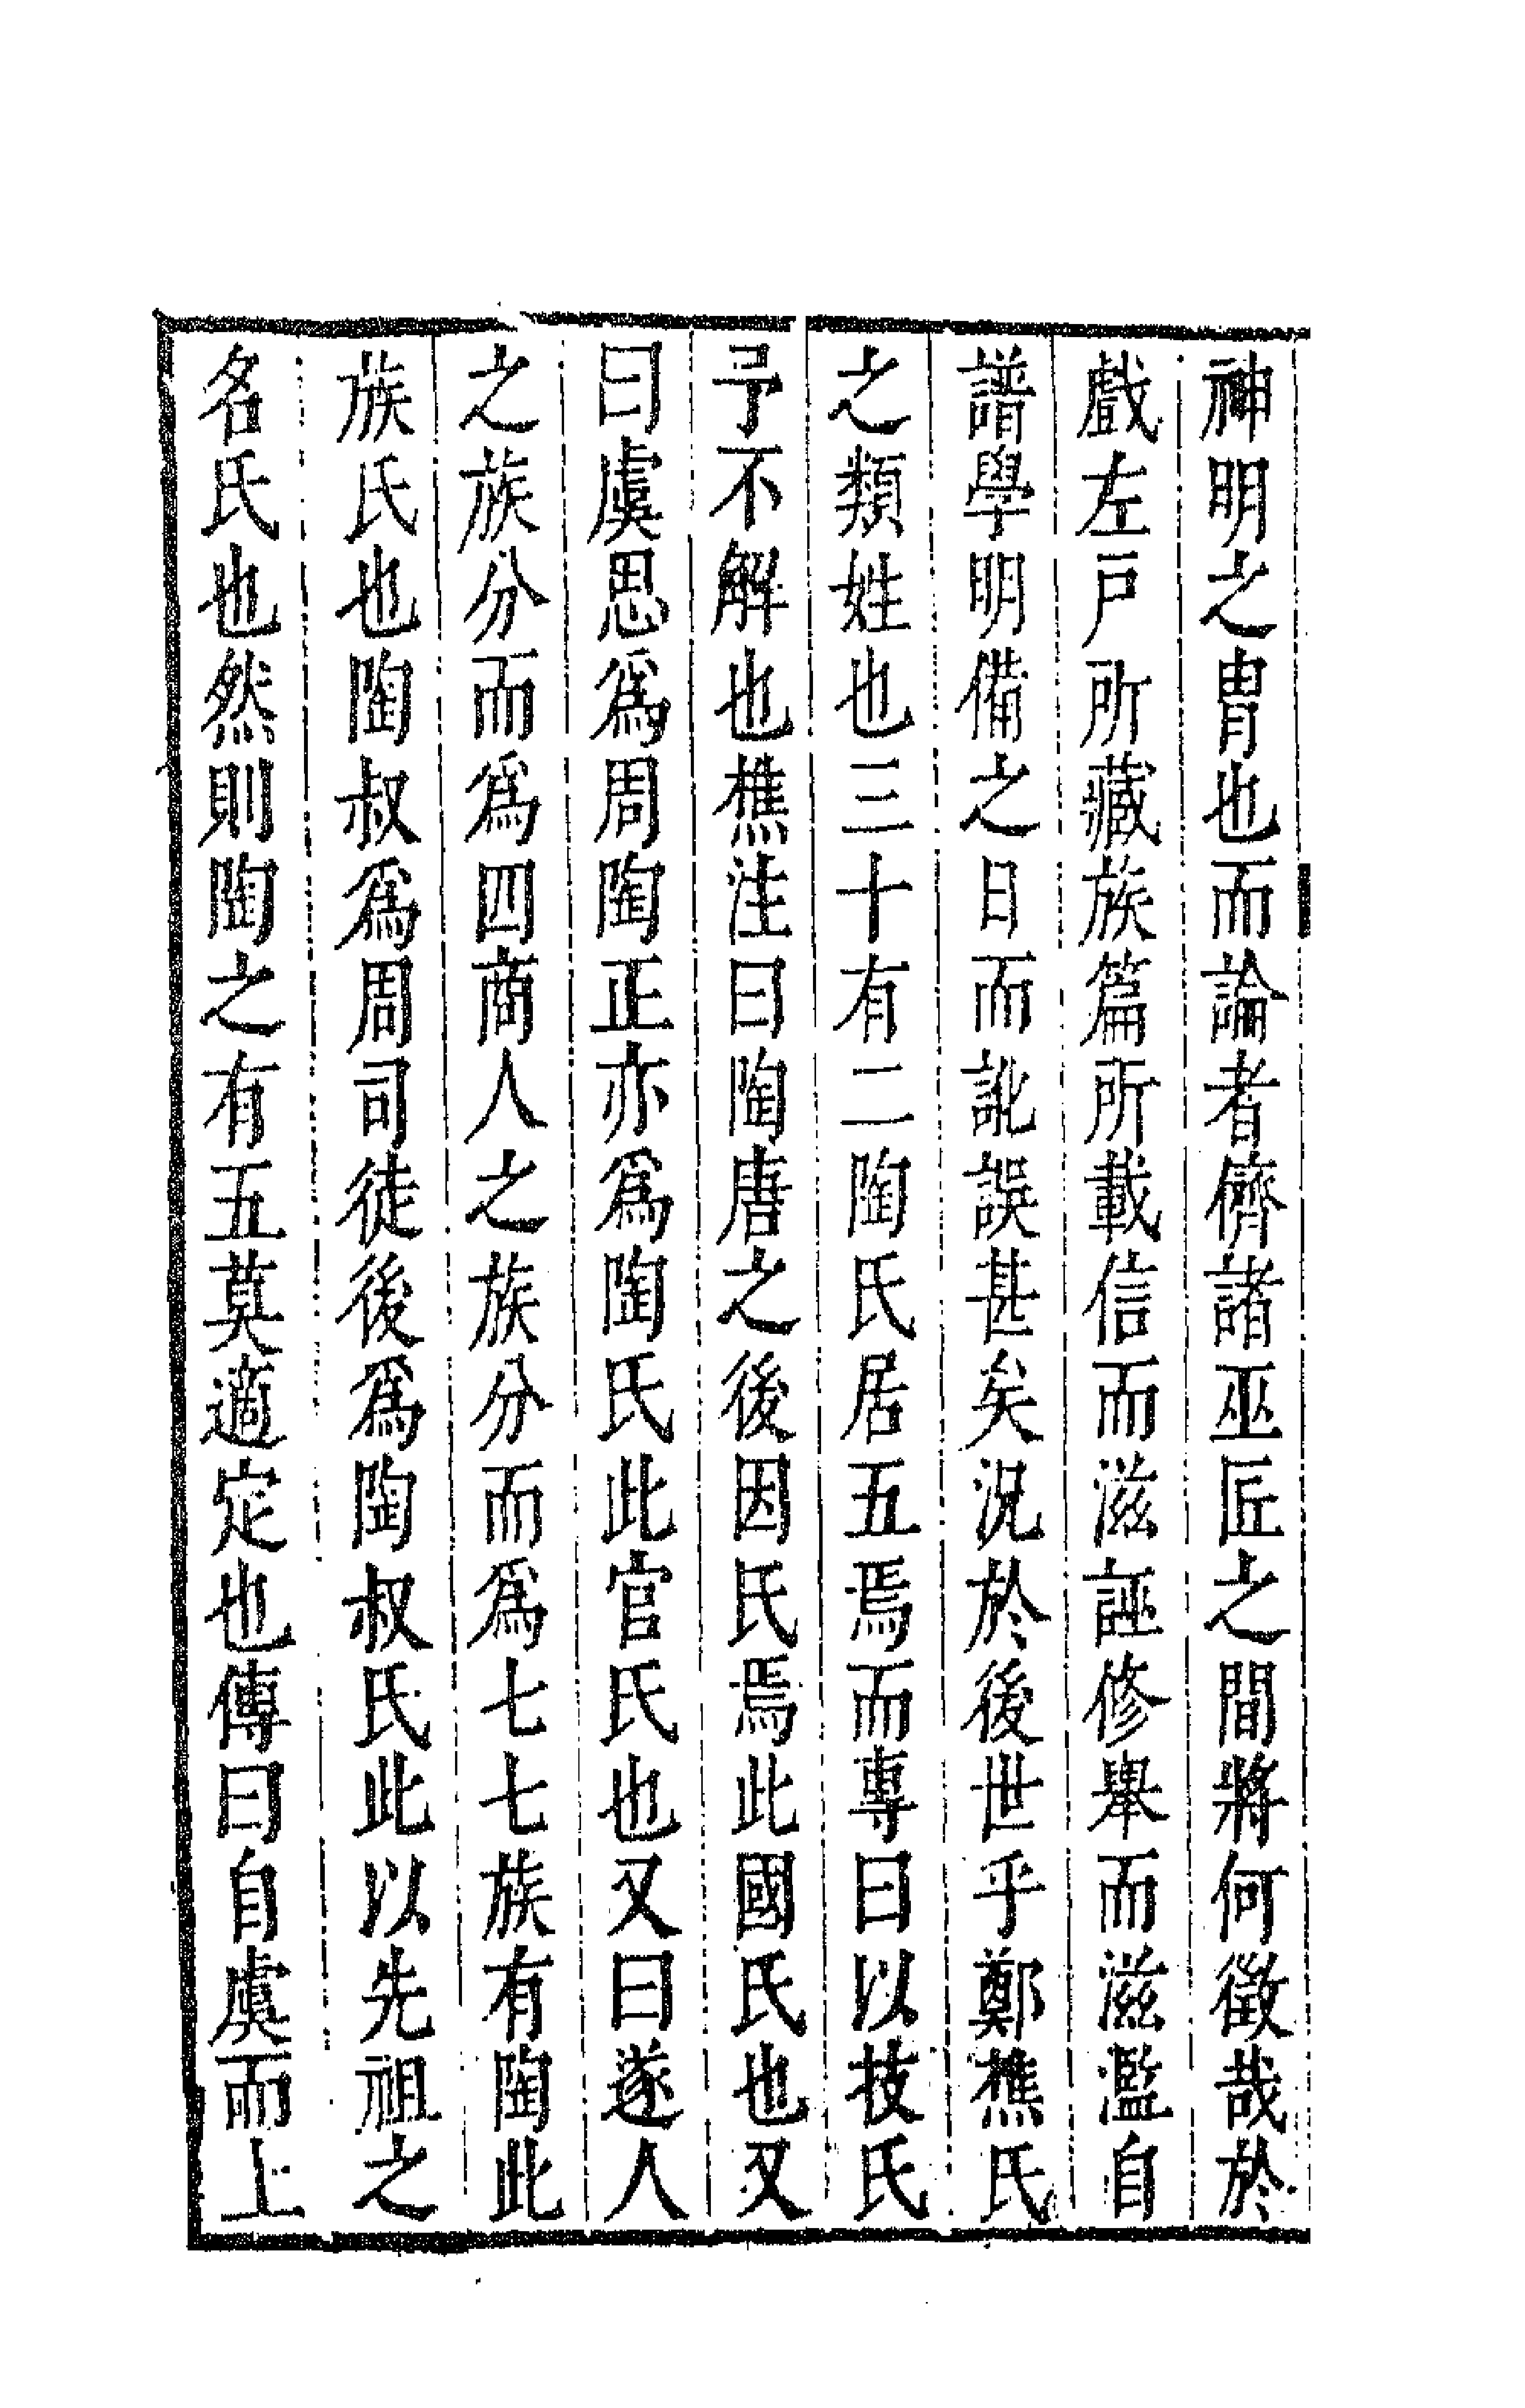 神明之冑也而論者儕諸巫匠之間將何徵哉於
戲左戶所藏族篇所載信而滋誣修舉而滋濫自
譜學明備之日而訛誤甚矣況於後世乎鄭樵氏
之類姓也三十有二陶氏居五焉而專曰以技氏
予不解也樵注曰陶唐之後因氏焉此國氏也又
曰虞思爲周陶正亦爲陶氏此官氏也又曰遂人
之族分而爲四商人之族分而爲七七族有陶此
族氏也陶叔爲周司徒後爲陶叔氏此以先祖之
名氏也然則陶之有五莫適定也傳曰自虞而上